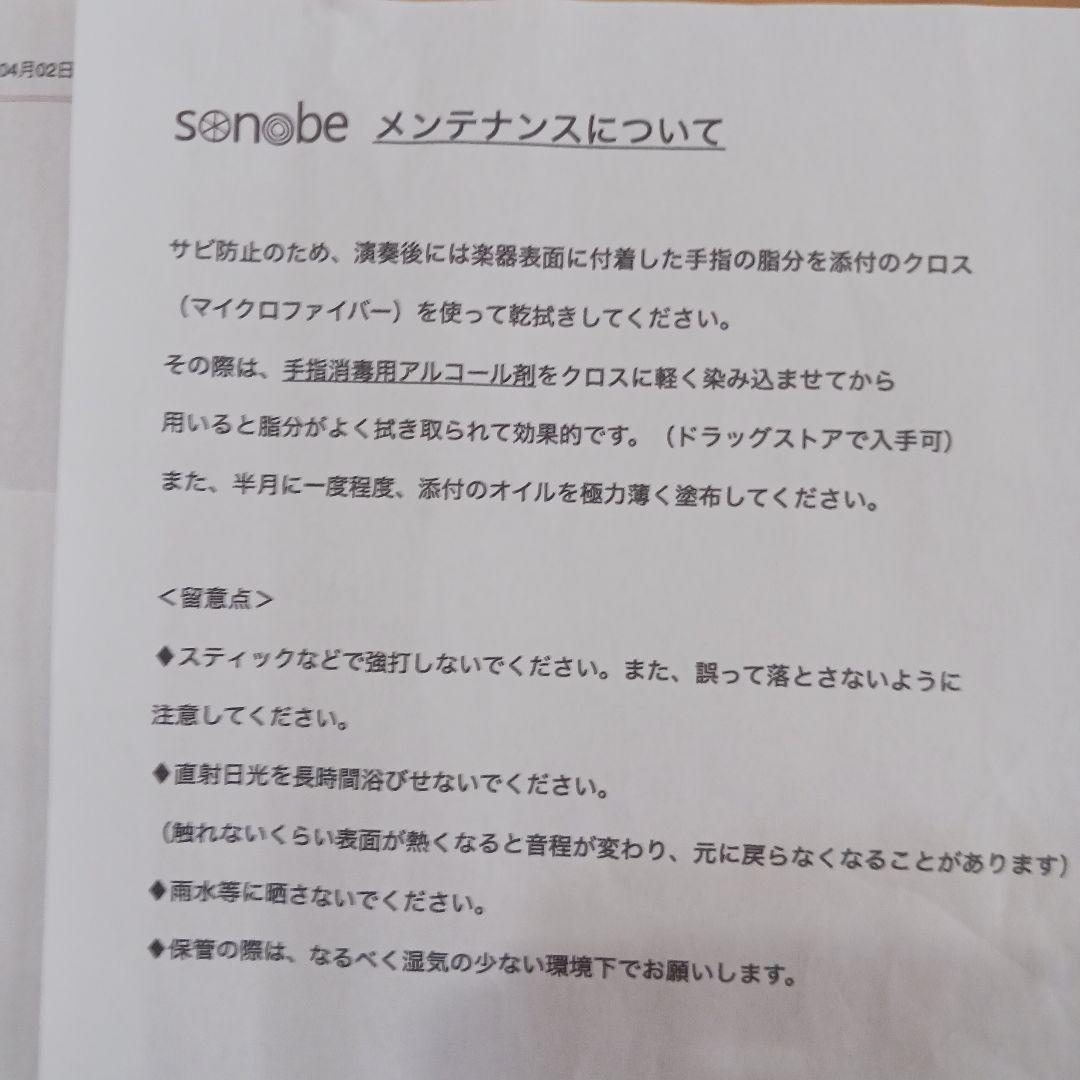 04月02日
sonobe メンテナンスについて
サビ防止のため、演奏後には楽器表面に付着した手指の脂分を添付のクロス
（マイクロファイバー）を使って乾拭きしてください。
その際は、手指消毒用アルコール剤をクロスに軽く染み込ませてから
用いると脂分がよく拭き取られて効果的です。（ドラッグストアで入手可）
また、半月に一度程度、添付のオイルを極力薄く塗布してください。
＜留意点＞
♦スティックなどで強打しないでください。また、誤って落とさないように
注意してください。
♦直射日光を長時間浴びせないでください。
（触れないくらい表面が熱くなると音程が変わり、元に戻らなくなることがあります）
♦雨水等に晒さないでください。
♦保管の際は、なるべく湿気の少ない環境下でお願いします。